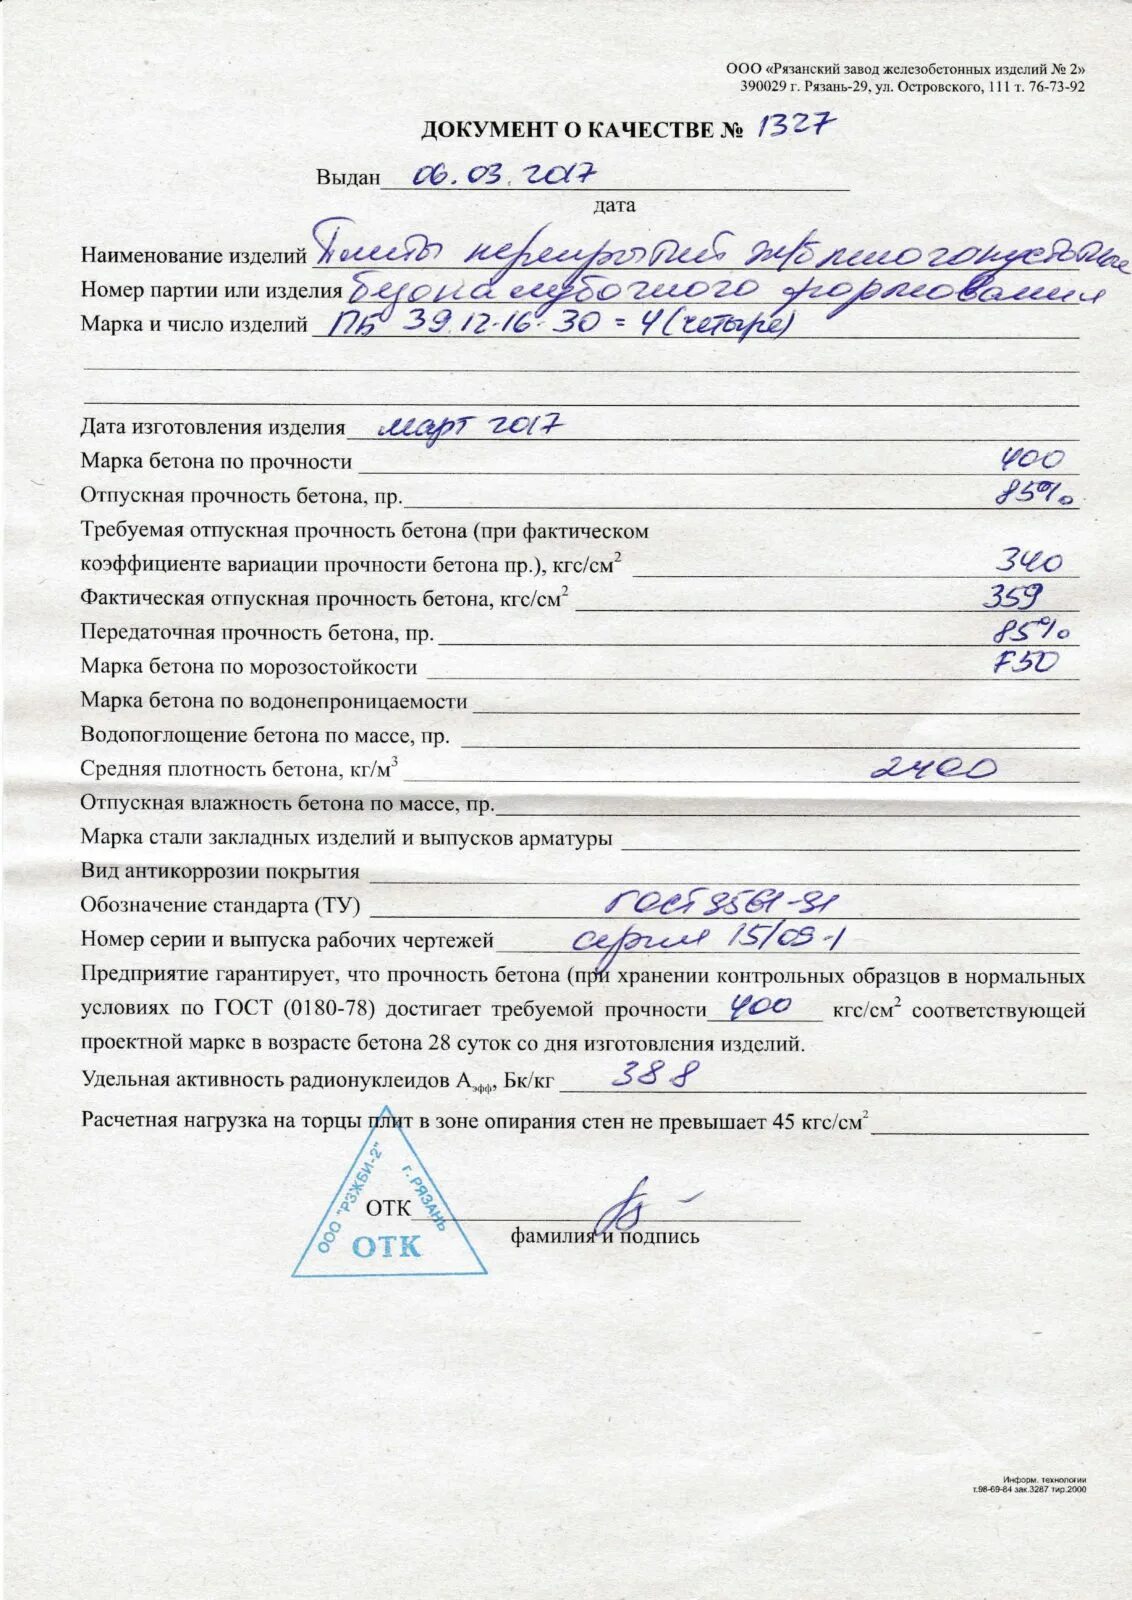 ООО «Рязанский завод железобетонных изделий № 2»
390029 г. Рязань-29, ул. Островского, 111 т. 76-73-92
ДОКУМЕНТ О КАЧЕСТВЕ № 1327
Выдан 06.03.2017
дата
Наименование изделий Плиты перекрытий ж/б многопустотные
Номер партии или изделия безопалубочного формования
Марка и число изделий ПБ 39.12-16-30 = 4 (четыре)
Дата изготовления изделия март 2017
Марка бетона по прочности 400
Отпускная прочность бетона, пр. 85%
Требуемая отпускная прочность бетона (при фактическом
коэффициенте вариации прочности бетона пр.), кгс/см² 340
Фактическая отпускная прочность бетона, кгс/см² 359
Передаточная прочность бетона, пр. 85%
Марка бетона по морозостойкости F50
Марка бетона по водонепроницаемости
Водопоглощение бетона по массе, пр.
Средняя плотность бетона, кг/м³ 2400
Отпускная влажность бетона по массе, пр.
Марка стали закладных изделий и выпусков арматуры
Вид антикоррозии покрытия
Обозначение стандарта (ТУ) ГОСТ 9561-91
Номер серии и выпуска рабочих чертежей серия 15/09-1
Предприятие гарантирует, что прочность бетона (при хранении контрольных образцов в нормальных
условиях по ГОСТ (0180-78) достигает требуемой прочности 400 кгс/см² соответствующей
проектной марке в возрасте бетона 28 суток со дня изготовления изделий.
Удельная активность радионуклеидов Aэфф, Бк/кг 388
Расчетная нагрузка на торцы плит в зоне опирания стен не превышает 45 кгс/см²
ООО "РЗЖБИ-2"
г. РЯЗАНЬ
ОТК
ОТК
фамилия и подпись
Информ. технологии
т.98-69-84 зак.3287 тир.2000